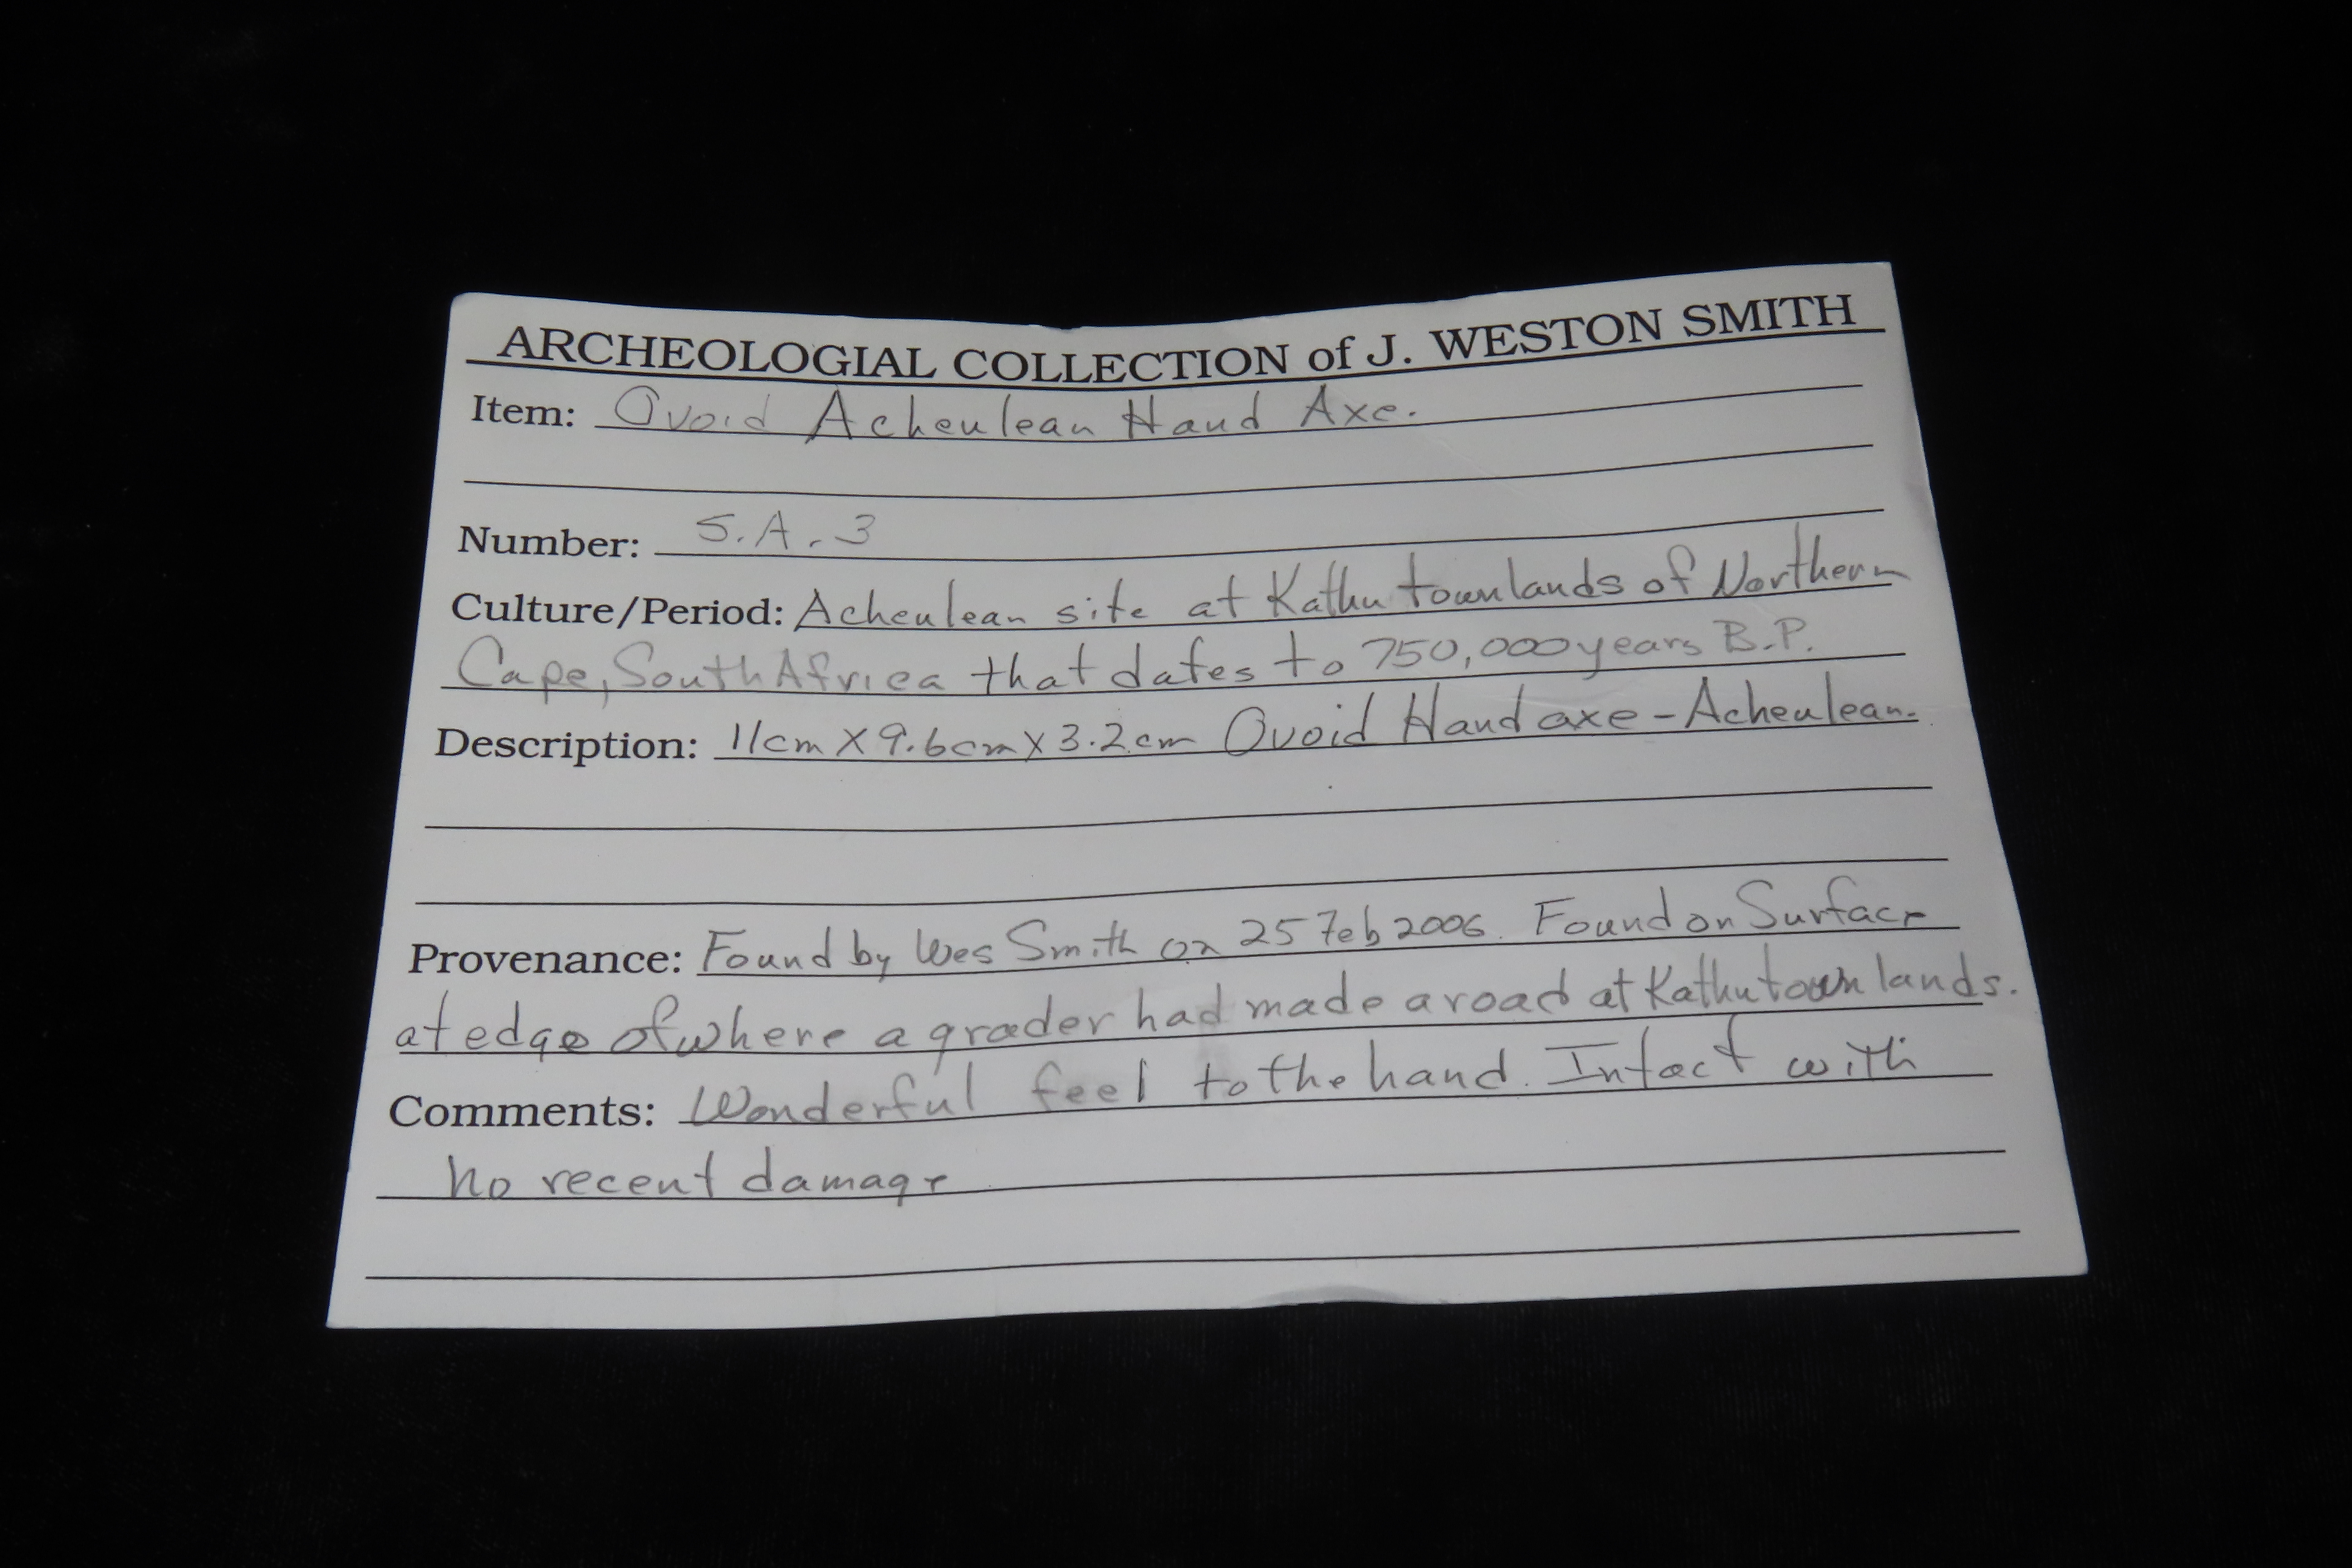 ARCHEOLOGIAL COLLECTION of J. WESTON SMITH
Item: Ovoid Acheulean Hand Axe.
Number: S.A. 3
Culture/Period: Acheulean site at Kathu townlands of Northern
Cape, South Africa that dates to 750,000 years B.P.
Description: 11cm X 9.6cm X 3.2cm Ovoid Handaxe - Acheulean.
Provenance: Found by Wes Smith on 25 Feb 2006. Found on Surface
at edge of where a grader had made a road at Kathu townlands.
Comments: Wonderful feel to the hand. Intact with
no recent damage